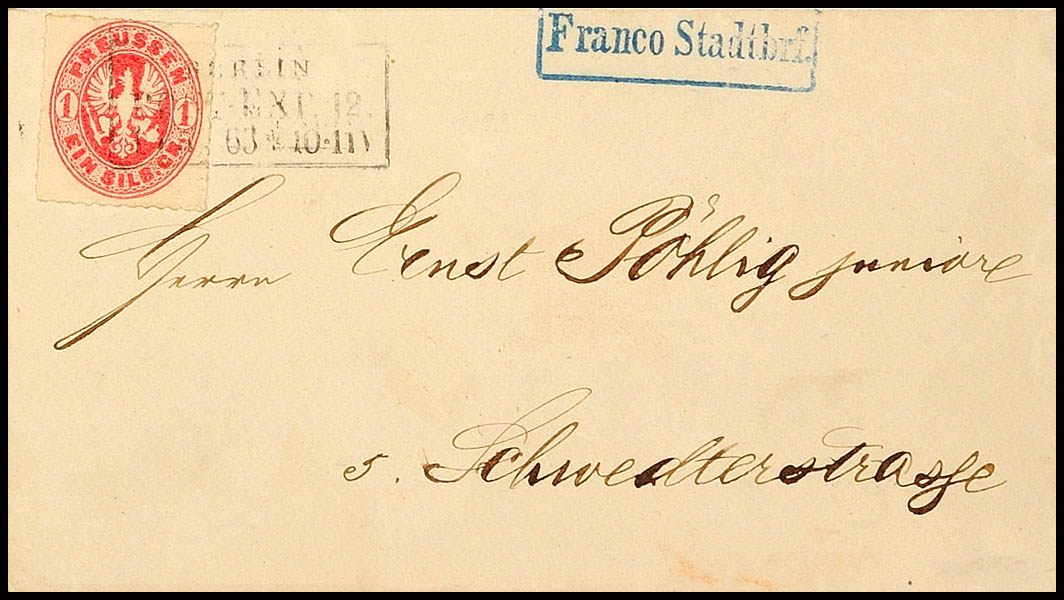 PREUSSEN
1 1
EIN SILB.GR.
BERLIN
EXP. 12.
63 10-11V
Franco Stadtbrf.
Herrn Ernst Pöhlig juniore
5. Schwedterstrasse